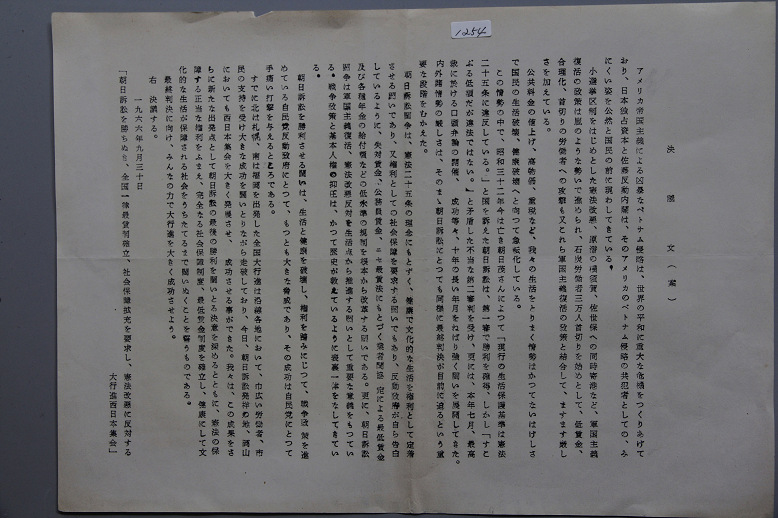 1254
決議文(案)
アメリカ帝国主義による凶暴なベトナム侵略は、世界の平和に重大な危機をつくりあげて
おり、日本独占資本と佐藤反動内閣は、そのアメリカのベトナム侵略の共犯者としての、み
にくい姿を公然と国民の前に現わしてきている。
小選挙区制をはじめとした憲法改悪、原潜の横須賀、佐世保への同時寄港など、軍国主義
復活の政策は嵐のような勢いで進められ、石炭労働者三万人首切りを始めとして、低賃金、
合理化、首切りの労働者への攻撃も又これら軍国主義復活の政策と結合して、ますます厳し
さを加えている。
公共料金の値上げ、高物価、重税など、我々の生活をとりまく情勢はかつてないはげしさ
で国民の生活破壊、健康破壊へと向つて急転化している。
この情勢の中で、昭和三十二年今は亡き朝日茂さんによつて「現行の生活保護基準は憲法
二十五条に違反している。」と国を訴えた朝日訴訟は、第一審で勝利を獲得、しかし「すこ
ぶる低額だが違法ではない。」と矛盾した不当な第二審判を受け、更には、本年七月、最高
裁に於ける口頭弁論の開催、成功等々、十年の長い年月をねばり強く闘いを展開してきた。
内外諸情勢の厳しさは、そのまゝ朝日訴訟にとつても同様に最終判決が目前に迫るという重
要な段階をむかえた。
朝日訴訟闘争は、憲法二十五条の理念にもとずく、健康で文化的な生活を権利として定着
させる闘いであり、又権利としての社会保障を要求する闘いでもあり、反動政府が自ら告白
しているように、失対賃金、公務員賃金、ニセ最賃法にもとづく業者間協定による最低賃金
及び各種年金の給付額などの低水準の規制を根本から改革する闘いである。更に、朝日訴訟
闘争は軍国主義復活、憲法改悪反対を生活点から推進する闘いとして重要な意義をもつてい
る。戦争政策と基本人権の抑圧は、かつて歴史が教えているように表裏一体をなしてきてい
る。
朝日訴訟を勝利させる闘いは、生活と健康を破壊し、権利を踏みにじつて、戦争政策を進
めている自民党反動政府にとつて、もつとも大きな脅威であり、その成功は自民党にとつて
手痛い打撃を与えるところである。
すでに北は札幌、南は福岡を出発した全国大行進は沿線各地において、巾広い労働者、市
民の支持を受け大きな成功を闘いとりながら走破しており、今日、朝日訴訟発祥の地、岡山
においても西日本集会を大きく発展させ、成功させる事ができた。我々は、この成果をさ
らに新たな出発点として朝日訴訟の最後の勝利を闘いとる決意を深めるとともに、憲法の保
障する正当な権利をふまえ、完全なる社会保障制度、最低賃金制度を確立し、健康にして文
化的な生活が保障される社会をうちたてるまで闘いぬくことを誓うものである。
最終判決に向け、みんなの力で大行進を大きく成功させよう。
右 決議する。
一九六六年九月三十日
「朝日訴訟を勝ちぬき、全国一律最賃制確立、社会保障拡充を要求し、憲法改悪に反対する
大行進西日本集会」